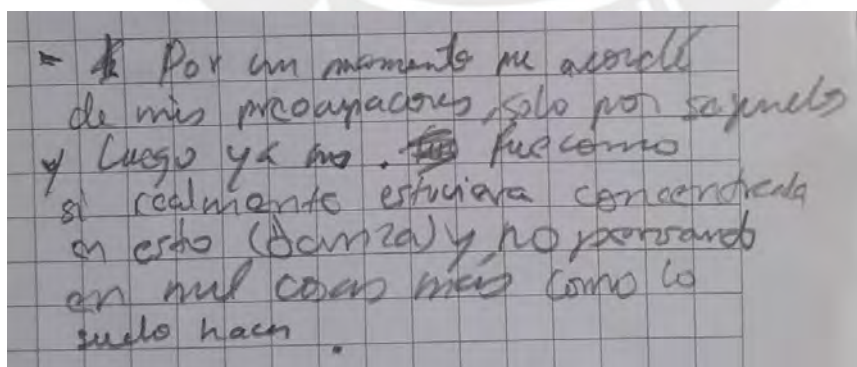 - Por un momento me acordé
de mis preocupaciones, solo por segundos
y luego ya no. fue como
si realmente estuviera concentrada
en esto (danza) y no pensando
en mil cosas más como lo
suelo hacer.